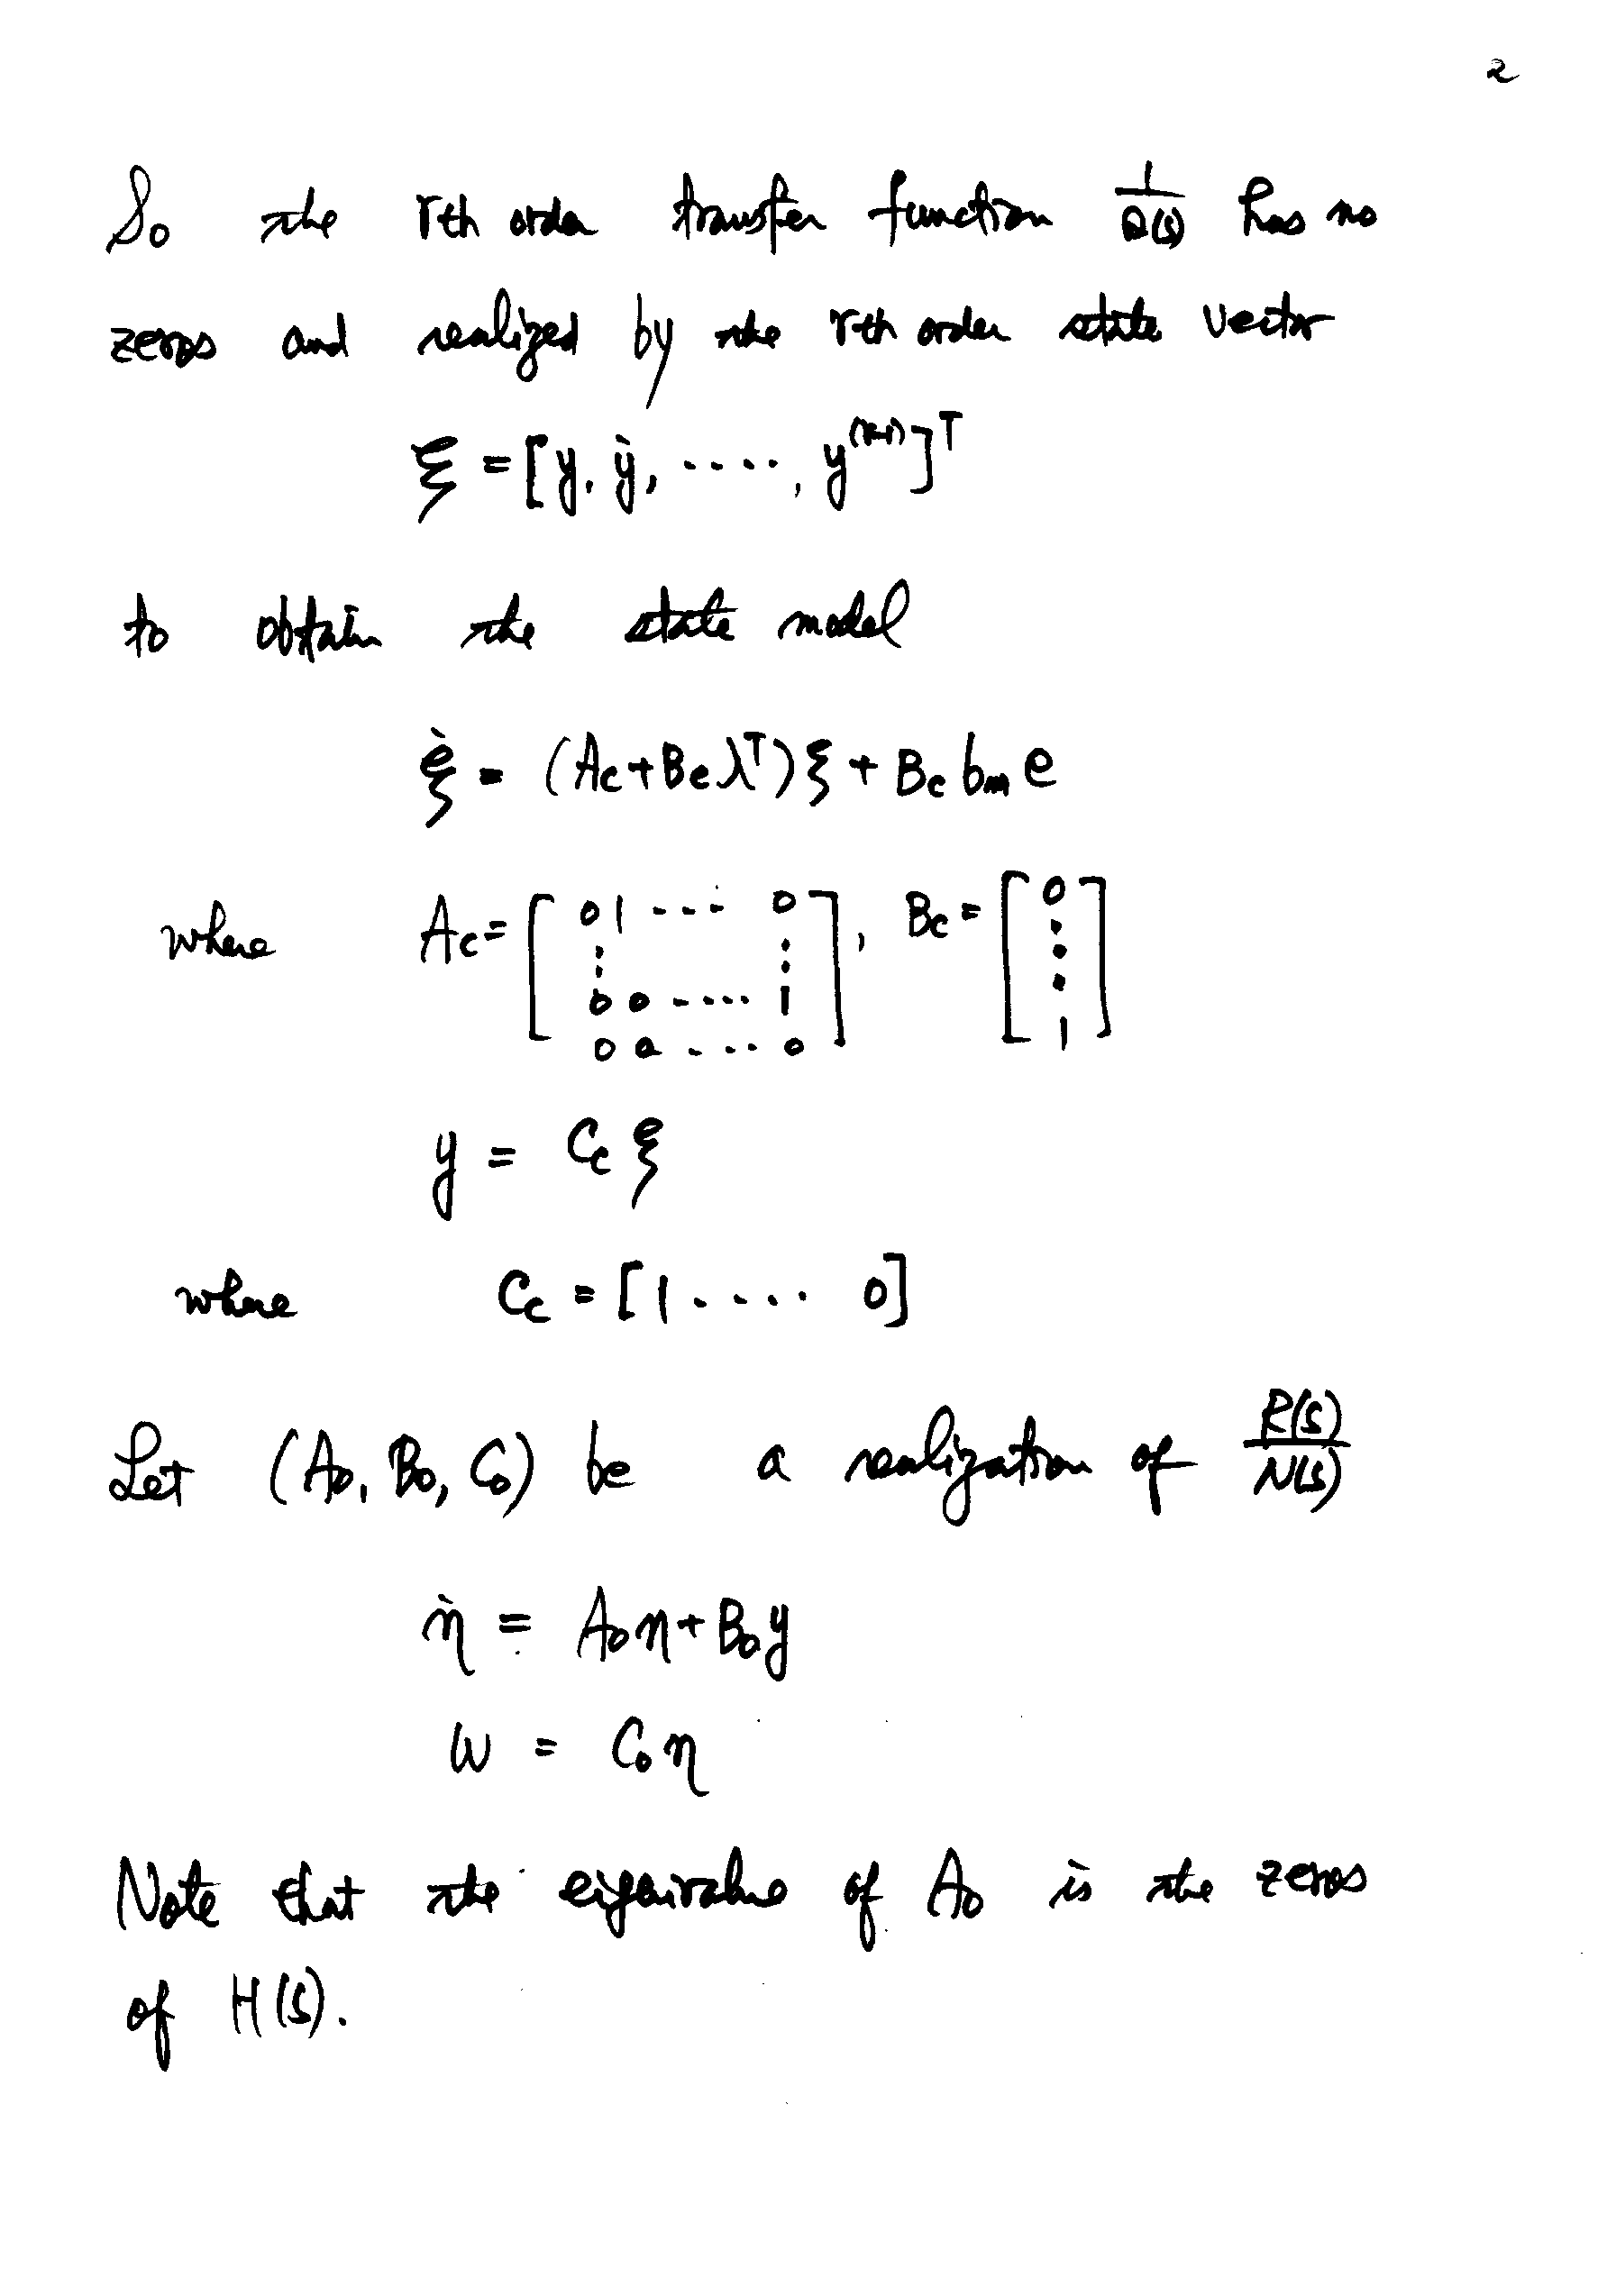 2
So the rth order transfer function 1/Q(s) has no
zeros and realized by the rth order state vector
ξ = [y, ẏ, ....., y^(r-1)]^T
to obtain the state model
ξ̇ = (Ac + Bc λ^T) ξ + Bc bm e
where Ac = [0 1 --- 0; ⋮ ⋮; 0 0 ----- 1; 0 0 ---- 0], Bc = [0; ⋮; 1]
y = Cc ξ
where Cc = [1 .... 0]
Let (A0, B0, C0) be a realization of R(s)/N(s)
η̇ = A0 η + B0 y
w = C0 η
Note that the eigenvalue of A0 is the zeros
of H(s).